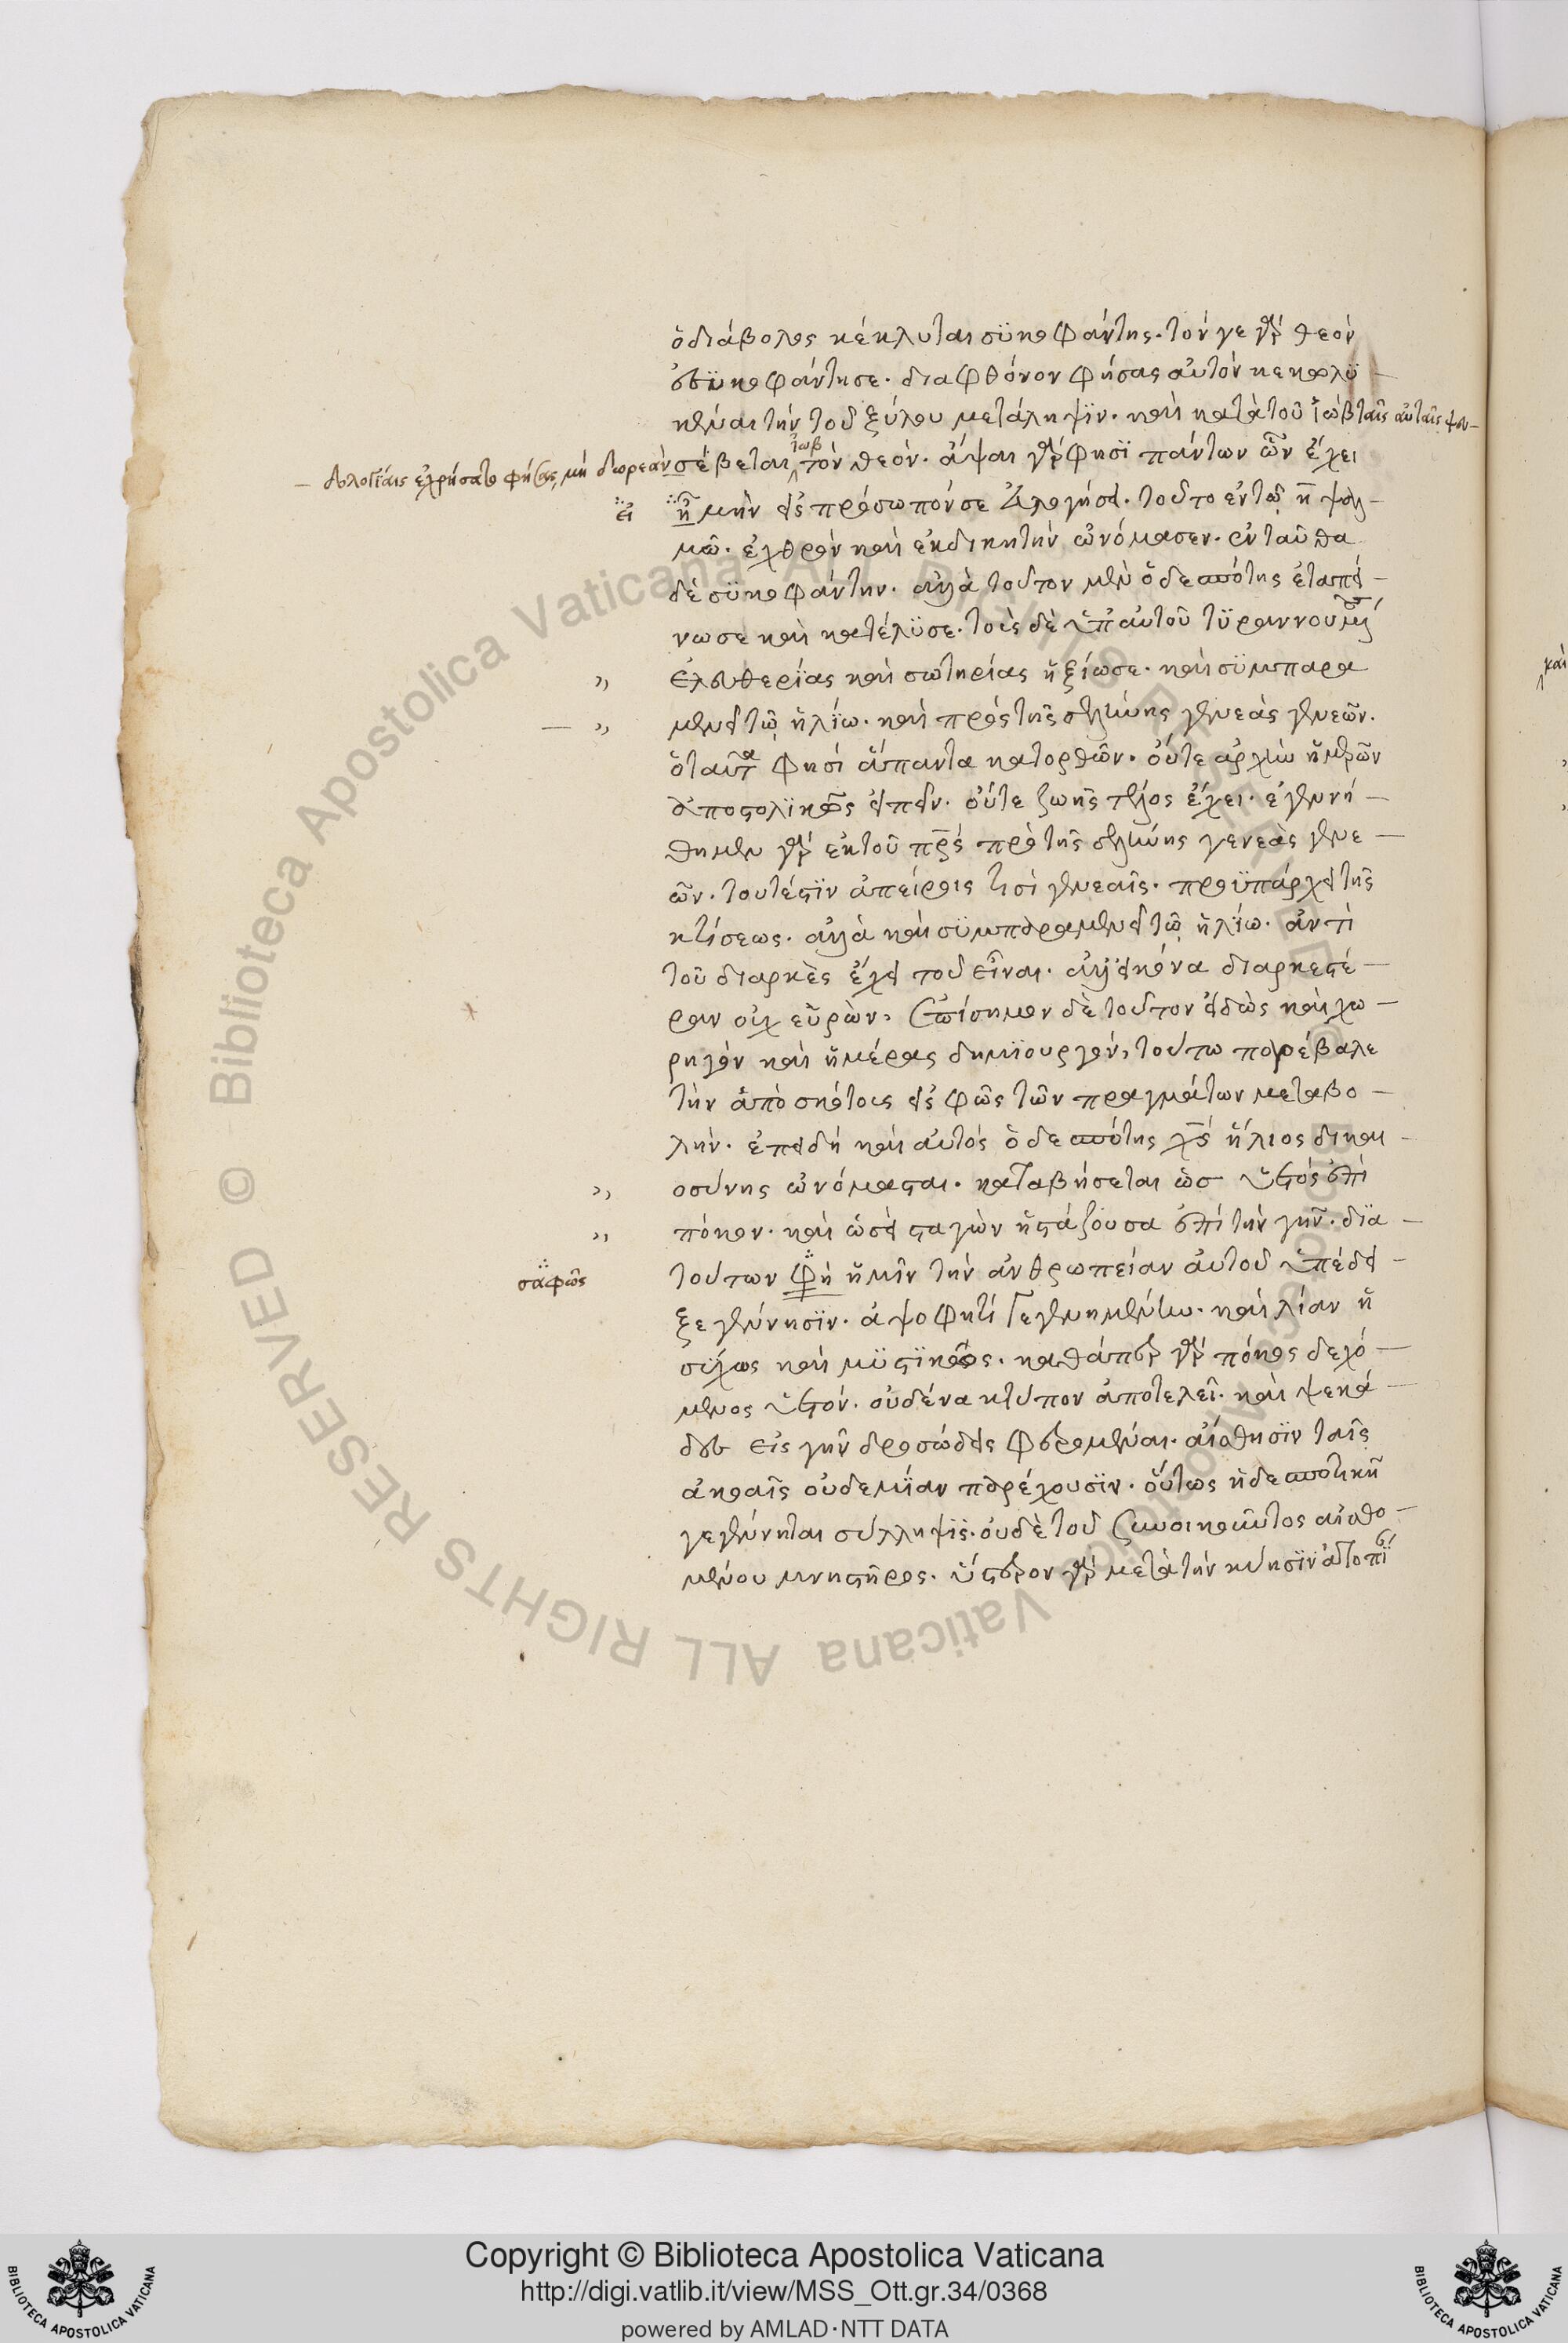 ὁ διάβολος κέκλυται συκοφάντης. τόν γε γὰρ θεὸν
ἐσϋκοφάντησε. διαφθόνον φήσας αὐτὸν κεκολϋ
κέναι τὴν τοῦ ξύλου μετάληψϊν. καὶ κατὰ τοῦ Ἰὼβ ταῖς αὐταῖς ψευ-
δολογίαις ἐχρήσατο φήσας, μὴ δωρεὰν σέβεται Ἰὼβ τὸν θεόν. ἅψαι γὰρ φησὶ πάντων ὧν ἔχει
εἰ ἢ μὴν εἰς πρόσωπόν σε εὐλογήσει. τοῦτο ἐν τῷ η ψαλ-
μῶ. ἐχθρὸν καὶ ἐκδικητὴν ὠνόμασεν. ἐνταῦθα
δὲ σϋκοφάντην. ἀλλὰ τοῦτον μὲν ὁ δεσπότης ἐταπεί-
νωσε καὶ κατέλϋσε. τοὺς δὲ ὑπ' αὐτοῦ τϋραννουμένους
„ ἐλευθερίας καὶ σωτηρίας ἠξίωσε. καὶ σϋμπαρα
— „ μενεῖ τῷ ἡλίω. καὶ πρὸς τῆς σελήνης γενεὰς γενεῶν.
ὁ ταῦτα φησὶ ἅπαντα κατορθῶν. οὔτε ἀρχὴν ἡμερῶν
ἀποστολϊκῶς εἰπεῖν. οὔτε ζωῆς τέλος ἔχει. ἐγεννή-
θη μὲν γὰρ ἐκ τοῦ πρς πρὸ τῆς σελήνης γενεὰς γενε-
ῶν. τουτέστϊν ἀπείροις τισὶ γενεαῖς. προϋπάρχει τῆς
κτίσεως. ἀλλὰ καὶ σϋμπαραμενεῖ τῷ ἡλίω. ἀντὶ
τοῦ διαρκὲς ἔχει τοῦ εἶναι. ἀλλ' εἰκόνα διαρκεστέ-
ραν οὐχ εὑρὼν, ἐπίσημον δὲ τοῦτον εἰδὼς καὶ χω-
ρηγὸν καὶ ἡμέρας δημϊουργὸν, τούτω παρέβαλε
τὴν ἀπὸ σκότους εἰς φῶς τῶν πραγμάτων μεταβο-
λήν. ἐπειδὴ καὶ αὐτὸς ὁ δεσπότης χς ἥλιος δικαι-
„ οσύνης ὠνόμασται. καταβήσεται ὡσ ὑετὸς ἐπὶ
„ πόκον. καὶ ὡσεὶ σταγὼν ἡ στάζουσα ἐπὶ τὴν γῆν. δϊα-
σαφῶς τούτων φη ἡμῖν τὴν ἀνθρωπείαν αὐτοῦ ὑπέδει-
ξε γέννησϊν. ἀψοφητὶ γεγενημένην. καὶ λίαν ἡ
σύχως καὶ μϋστϊκῶς. καθάπερ γὰρ πόκος δεχό-
μενος ὑετὸν. οὐδένα κτύπον ἀποτελεῖ. καὶ ψεκά-
δες εἰς γῆν δροσώδεις φερομέναι. αἴσθησϊν ταῖς
ἀκοαῖς οὐδεμΐαν παρέχουσϊν. οὕτως ἡ δεσποτικὴ
γεγένηται σύλληψις. οὐδὲ τοῦ ξυνοικοῦντος αἰσθο-
μένου μνηστῆρος. ὕστερον γὰρ μετὰ τὴν κύησϊν